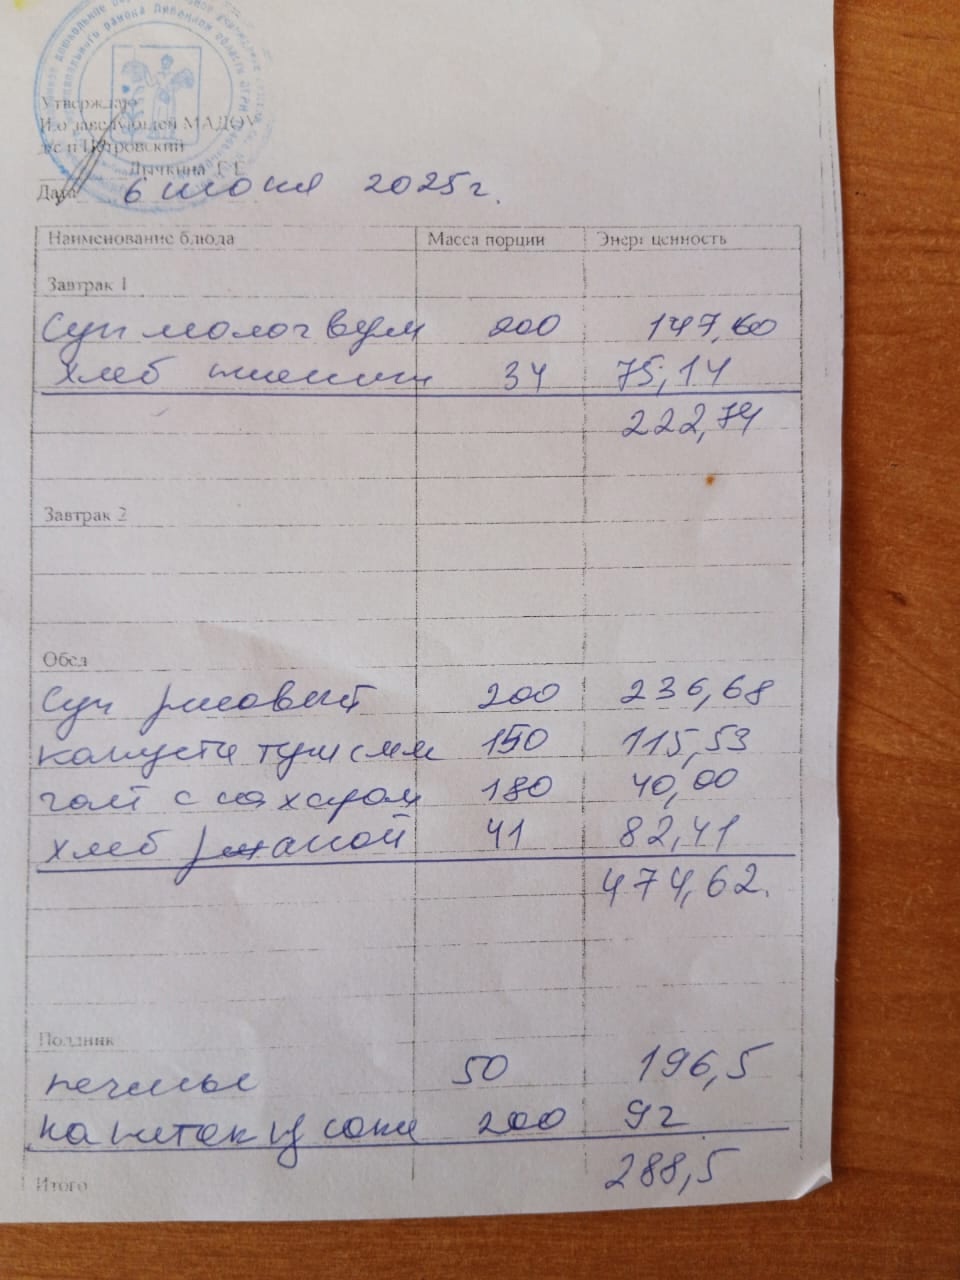 Утверждаю
И.о заведующей МАДОУ
д/с п Петровский
Лычкина Г Е
Дата 6 июня 2025г.
Наименование блюда Масса порции Энерг ценность
Завтрак 1
Суп молоч верм 200 147,60
хлеб пшенич 34 75,14
222,74
Завтрак 2
Обед
Суп рисовый 200 236,68
капуста туш с мя 150 115,53
чай с сахаром 180 40,00
хлеб ржаной 41 82,41
474,62.
Полдник
печенье 50 196,5
напиток из 200 92
288,5
Итого